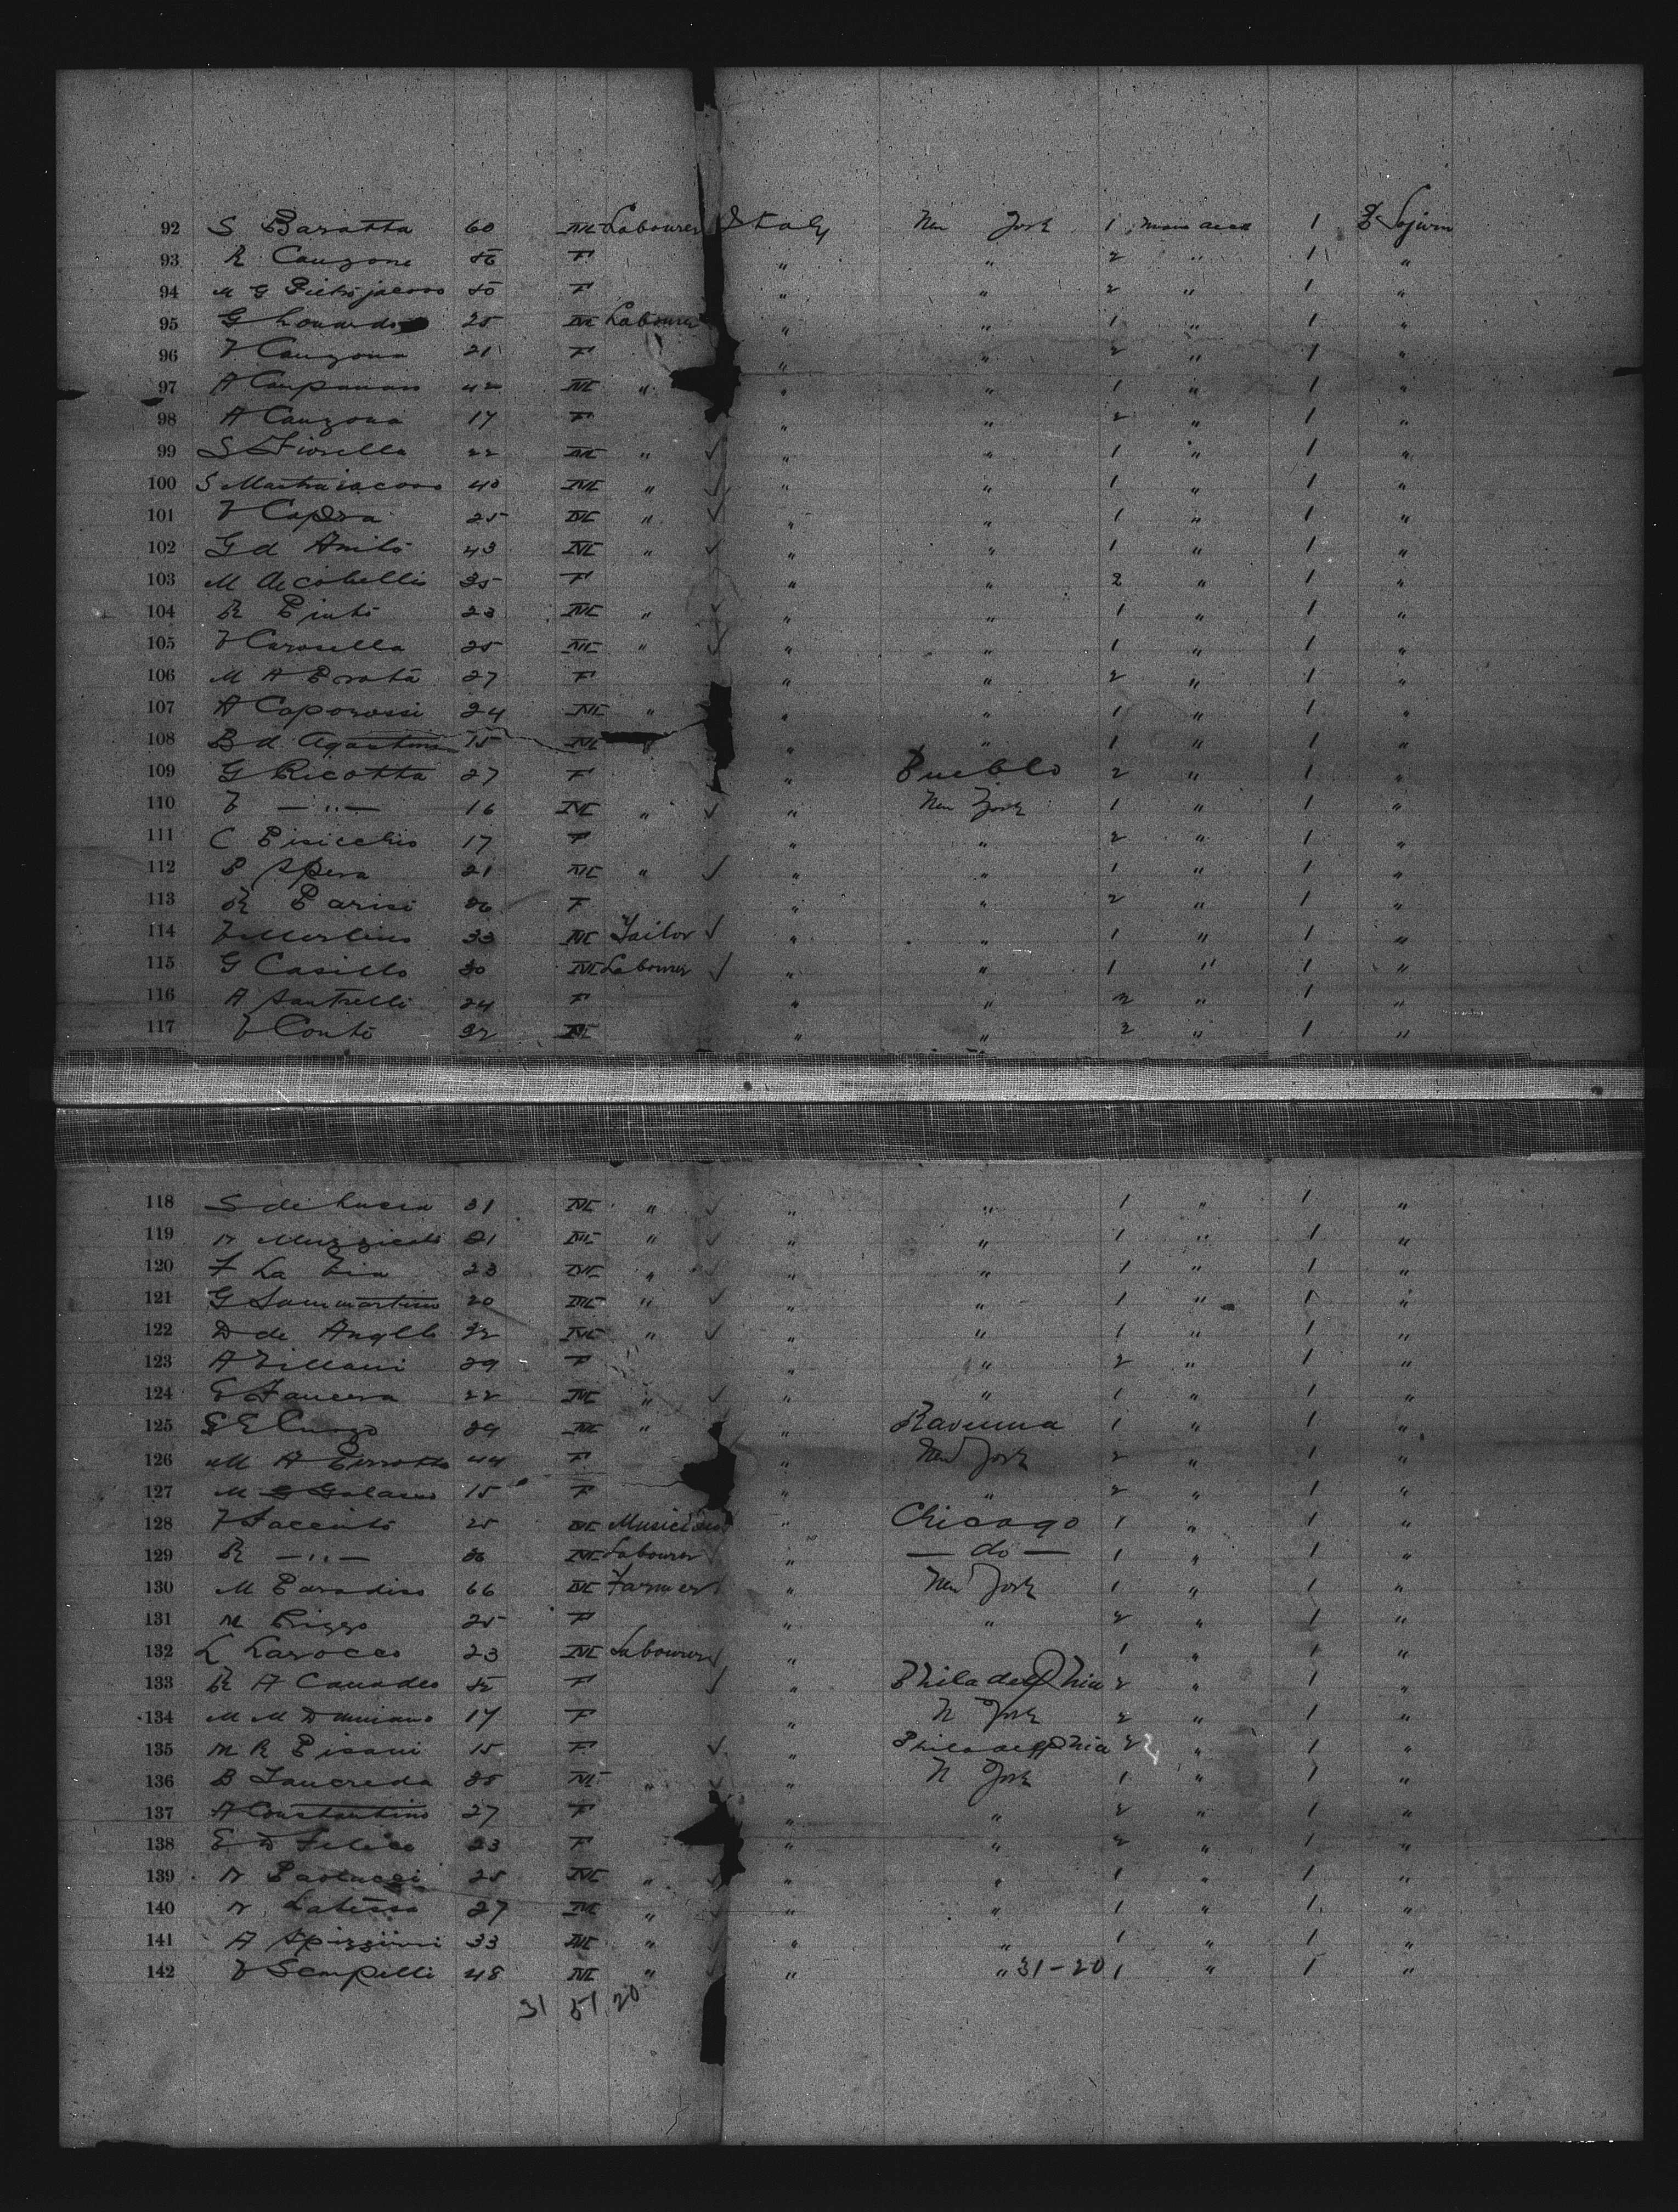 92 S Baratta 60 M Labourer Italy New York 1 Main deck 1 Sojourn
93 R Canzone F " " 2 " 1 "
94 M G Pietrojacovo F " " 2 " 1 "
95 G Lonardo 25 M Labourer " " 1 " 1 "
96 V Canzona 21 F " " 2 " 1 "
97 A Campanaro 42 M " " " 1 " 1 "
98 A Canzona 17 F " " 2 " 1 "
99 S Fiorella 22 M " " " 1 " 1 "
100 S Mastroiacovo 40 M " " " 1 " 1 "
101 V Capra 25 M " " " 1 " 1 "
102 G d Amito 43 M " " " 1 " 1 "
103 M Decobellis 35 F " " 2 " 1 "
104 R Pinto 23 M " " " 1 " 1 "
105 V Carosella 25 M " " " 1 " 1 "
106 M A Prota 27 F " " 2 " 1 "
107 A Caporossi 24 M " " " 1 " 1 "
108 B d Agostino 15 M " " 1 " 1 "
109 G Ricotta 27 F " Pueblo 2 " 1 "
110 V — " — 16 M " " New York 1 " 1 "
111 C Pisicchio 17 F " " 2 " 1 "
112 P Spera 21 M " " " 1 " 1 "
113 R Parisi 36 F " " 2 " 1 "
114 V Merlino 33 M Tailor " " 1 " 1 "
115 G Casillo 30 M Labourer " " 1 " 1 "
116 A Santrelli 24 F " " 2 " 1 "
117 V Conte 32 " " 2 " 1 "
118 S de Lucia 31 M " " " 1 " 1 "
119 N 21 M " " " 1 " 1 "
120 F La 23 M " " " 1 " 1 "
121 G Sammartino 20 M " " " 1 " 1 "
122 D de Angelis 32 M " " " 1 " 1 "
123 A Villani 29 F " " 2 " 1 "
124 22 M " " " 1 " 1 "
125 39 M " " Ravenna 1 " 1 "
126 M A Perrotta 44 F " New York 2 " 1 "
127 M G Galasso 15 F " " 2 " 1 "
128 V Iacento 25 M Musician " Chicago 1 " 1 "
129 R — " — 36 M Labourer " — do — 1 " 1 "
130 M Paradiso 66 M Farmer " New York 1 " 1 "
131 M Rizzo 25 F " " 2 " 1 "
132 L Larocco 23 M Labourer " 1 " 1 "
133 R A Canadeo F " Philadelphia 2 " 1 "
134 M M Damiano 17 F " N York 2 " 1 "
135 M R Pisani 15 F " Philadelphia 2 " 1 "
136 B Tancreda 35 M " " N York 1 " 1 "
137 A Constantino 27 F " " 2 " 1 "
138 E D Felice 23 F " " 2 " 1 "
139 N Paolucci 25 M " " " 1 " 1 "
140 N Latessa 27 M " " " 1 " 1 "
141 A Spizzirri 33 M " " " 1 " 1 "
142 V Scarpelli 48 M " " " 31-20 1 " 1 "
31 51 20